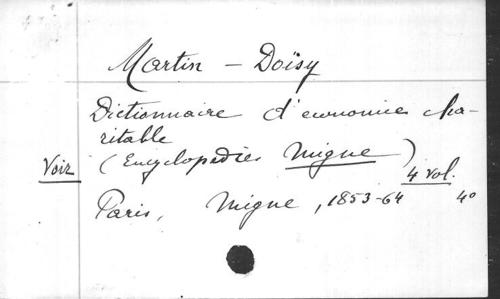 Martin - Doïsy
Dictionnaire d'economie cha-
ritable
Voir (Encyclopédies Migne)
4 vol.
Paris, Migne, 1853-64 4o